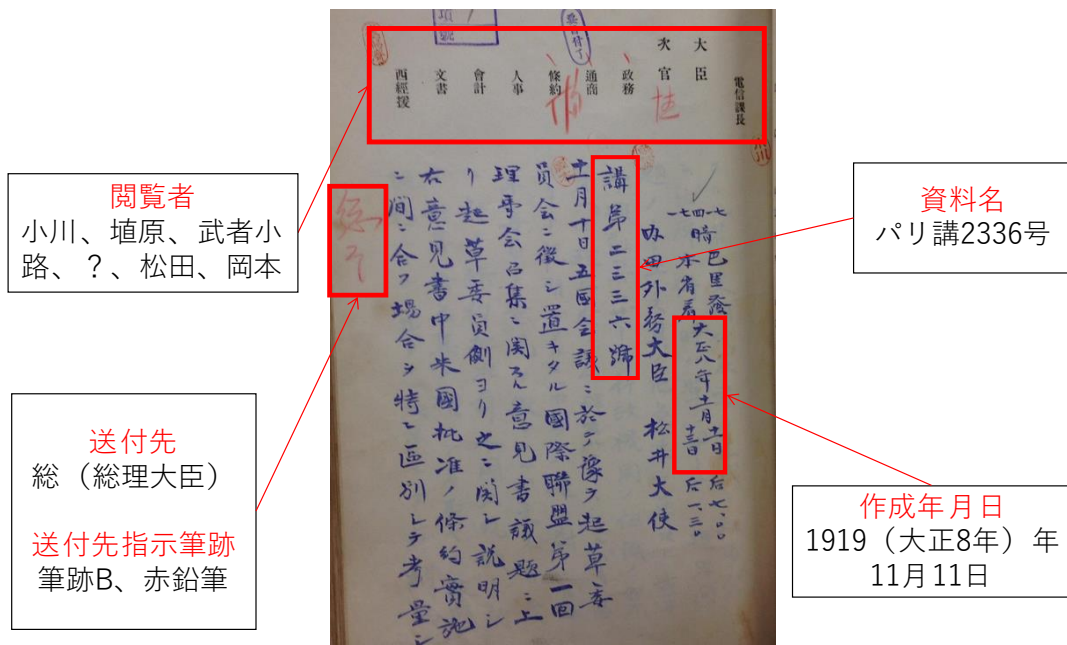 閲覧者
小川、埴原、武者小
路、？、松田、岡本
送付先
総（総理大臣）
送付先指示筆跡
筆跡B、赤鉛筆
資料名
パリ講2336号
作成年月日
1919（大正8年）年
11月11日
電信課長
大臣
次官
政務
通商
條約
人事
會計
文書
西經援
一七四一七
暗
巴里發
本省着
大正八年十一月
十一日
十三日
后七、〇〇
后一、三〇
内田外務大臣
松井大使
講第二三三六號
十一月十日五國会議ニ於テ豫テ起草委
員会ニ徴シ置キタル國際聯盟第一回
理事会召集ニ関スル意見書議題ニ上
リ起草委員側ヨリ之ニ関シ説明シ
右意見書中米國批准ノ條約實施
ニ間ニ合フ場合ヲ特ニ区別シテ考量シ